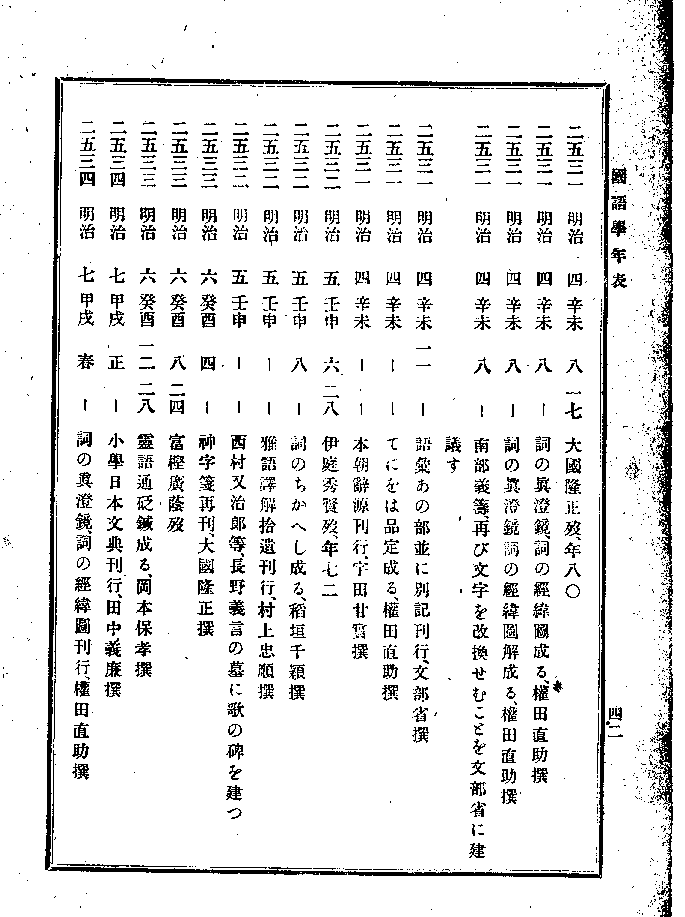 國語學年表
四二
二五三一 明治 四 辛未 八 一七 大國隆正歿、年八〇
二五三一 明治 四 辛未 八 ー 詞の眞澄鏡、詞の經緯圖成る、權田直助撰
二五三一 明治 四 辛未 八 ー 詞の眞澄鏡詞の經緯圖解成る、權田直助撰
二五三一 明治 四 辛未 八 ー 南部義籌再び文字を改換せむことを文部省に建
議す
二五三一 明治 四 辛未 一一 ー 語彙あの部並に別記刊行、文部省撰
二五三一 明治 四 辛未 ー ー てにをは品定成る、權田直助撰
二五三一 明治 四 辛未 ー ー 本朝辭源刊行、宇田甘冥撰
二五三二 明治 五 壬申 六 二八 伊庭秀賢歿、年七二
二五三二 明治 五 壬申 八 ー 詞のちかへし成る、稻垣千穎撰
二五三二 明治 五 壬申 ー ー 雅語譯解拾遺刊行、村上忠順撰
二五三二 明治 五 壬申 ー ー 西村又治郎等、長野義言の墓に歌の碑を建つ
二五三三 明治 六 癸酉 四 ー 神字箋再刊、大國隆正撰
二五三三 明治 六 癸酉 八 二四 富樫廣蔭歿
二五三三 明治 六 癸酉 一二 二八 靈語通砭鍼成る、岡本保孝撰
二五三四 明治 七 甲戌 正 ー 小學日本文典刊行、田中義廉撰
二五三四 明治 七 甲戌 春 ー 詞の眞澄鏡、詞の經緯圖刊行、權田直助撰